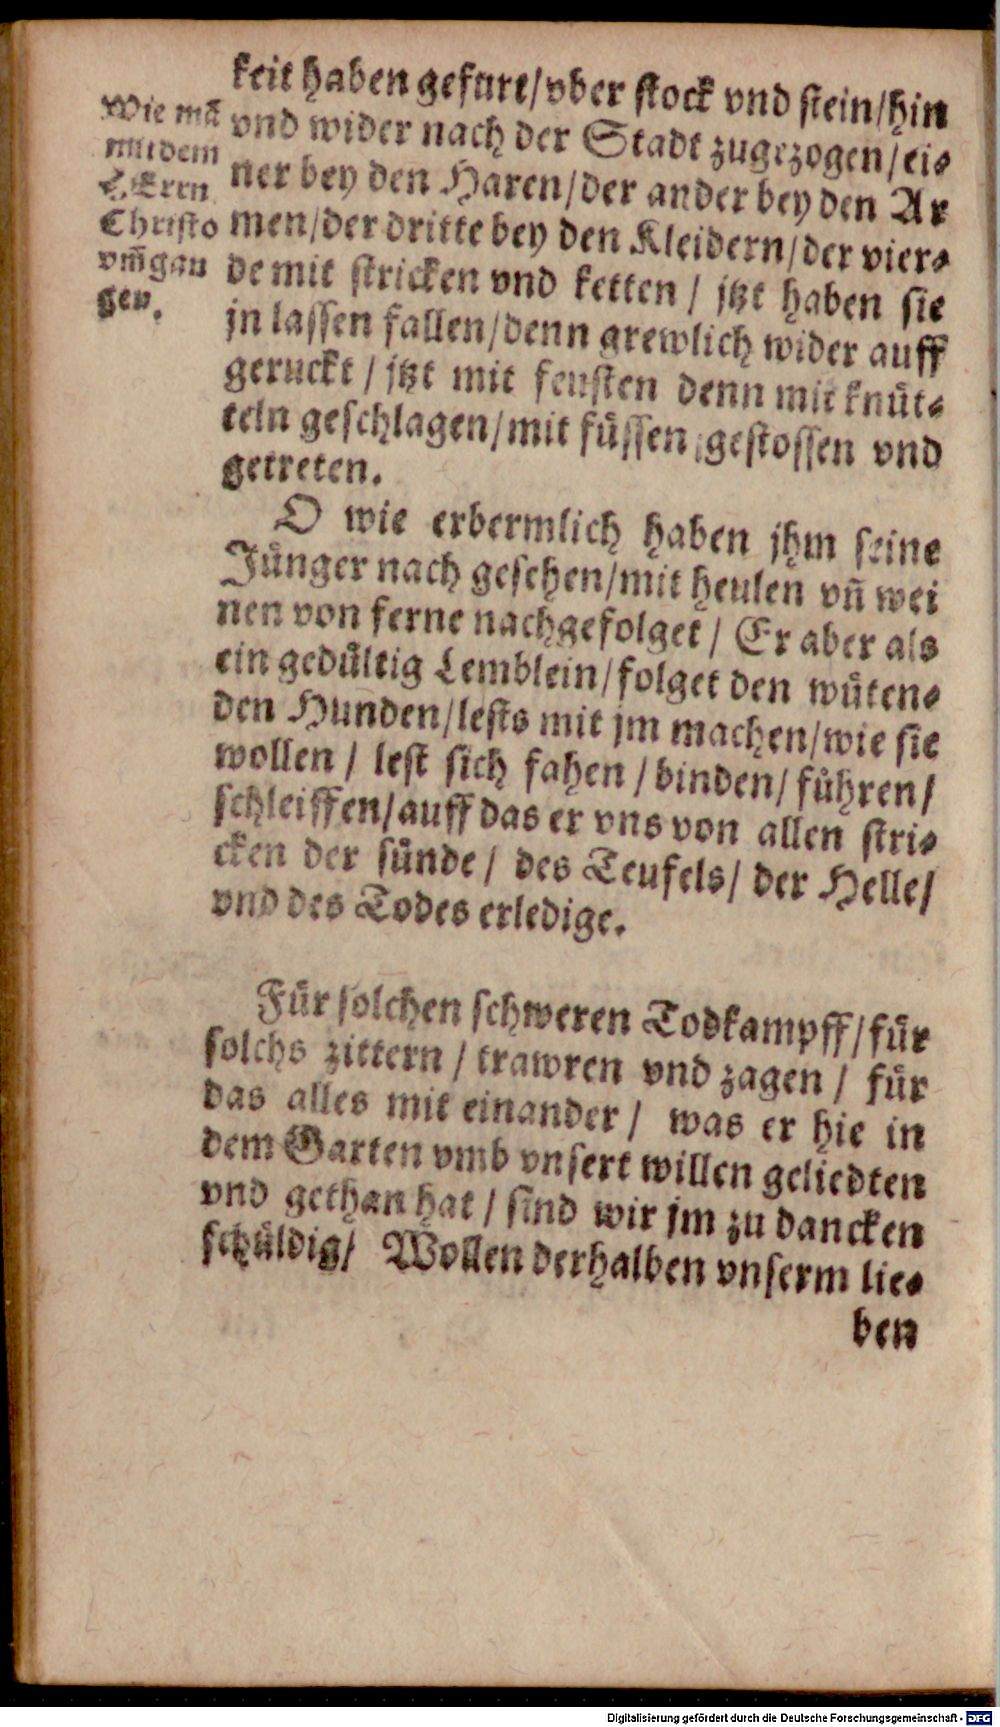 Wie mā
mit dem
HErrn
Christo
vm̄gan
gen.
keit haben gefurt/vber stock vnd stein/hin
vnd wider nach der Stadt zugezogen/ei⸗
ner bey den Haren/der ander bey den Ar
men/der dritte bey den Kleidern/der vier⸗
de mit stricken vnd ketten / jtzt haben sie
jn lassen fallen/denn grewlich wider auff
geruckt / jtzt mit feusten denn mit knüt⸗
teln geschlagen/mit füssen gestossen vnd
getreten.
O wie erbermlich haben jhm seine
Jünger nach gesehen/mit heulen vn̄ wei
nen von ferne nachgefolget / Er aber als
ein gedültig Lemblein/folget den wüten⸗
den Hunden/lests mit jm machen/wie sie
wollen / lest sich fahen / binden/ führen/
schleiffen/auff das er vns von allen stri⸗
cken der sünde / des Teufels/ der Helle/
vnd des Todes erledige.
Für solchen schweren Todkampff/für
solchs zittern / trawren vnd zagen / für
das alles mit einander / was er hie in
dem Garten vmb vnsert willen geliedten
vnd gethan hat / sind wir jm zu dancken
schüldig/ Wollen derhalben vnserm lie⸗
ben
Digitalisierung gefördert durch die Deutsche Forschungsgemeinschaft - DFG